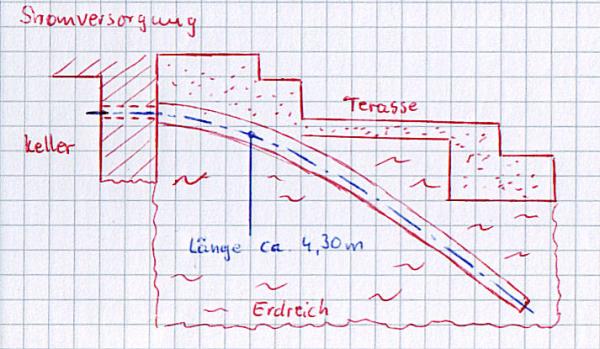 Stromversorgung
Terasse
Keller
Länge ca. 4,30m
Erdreich